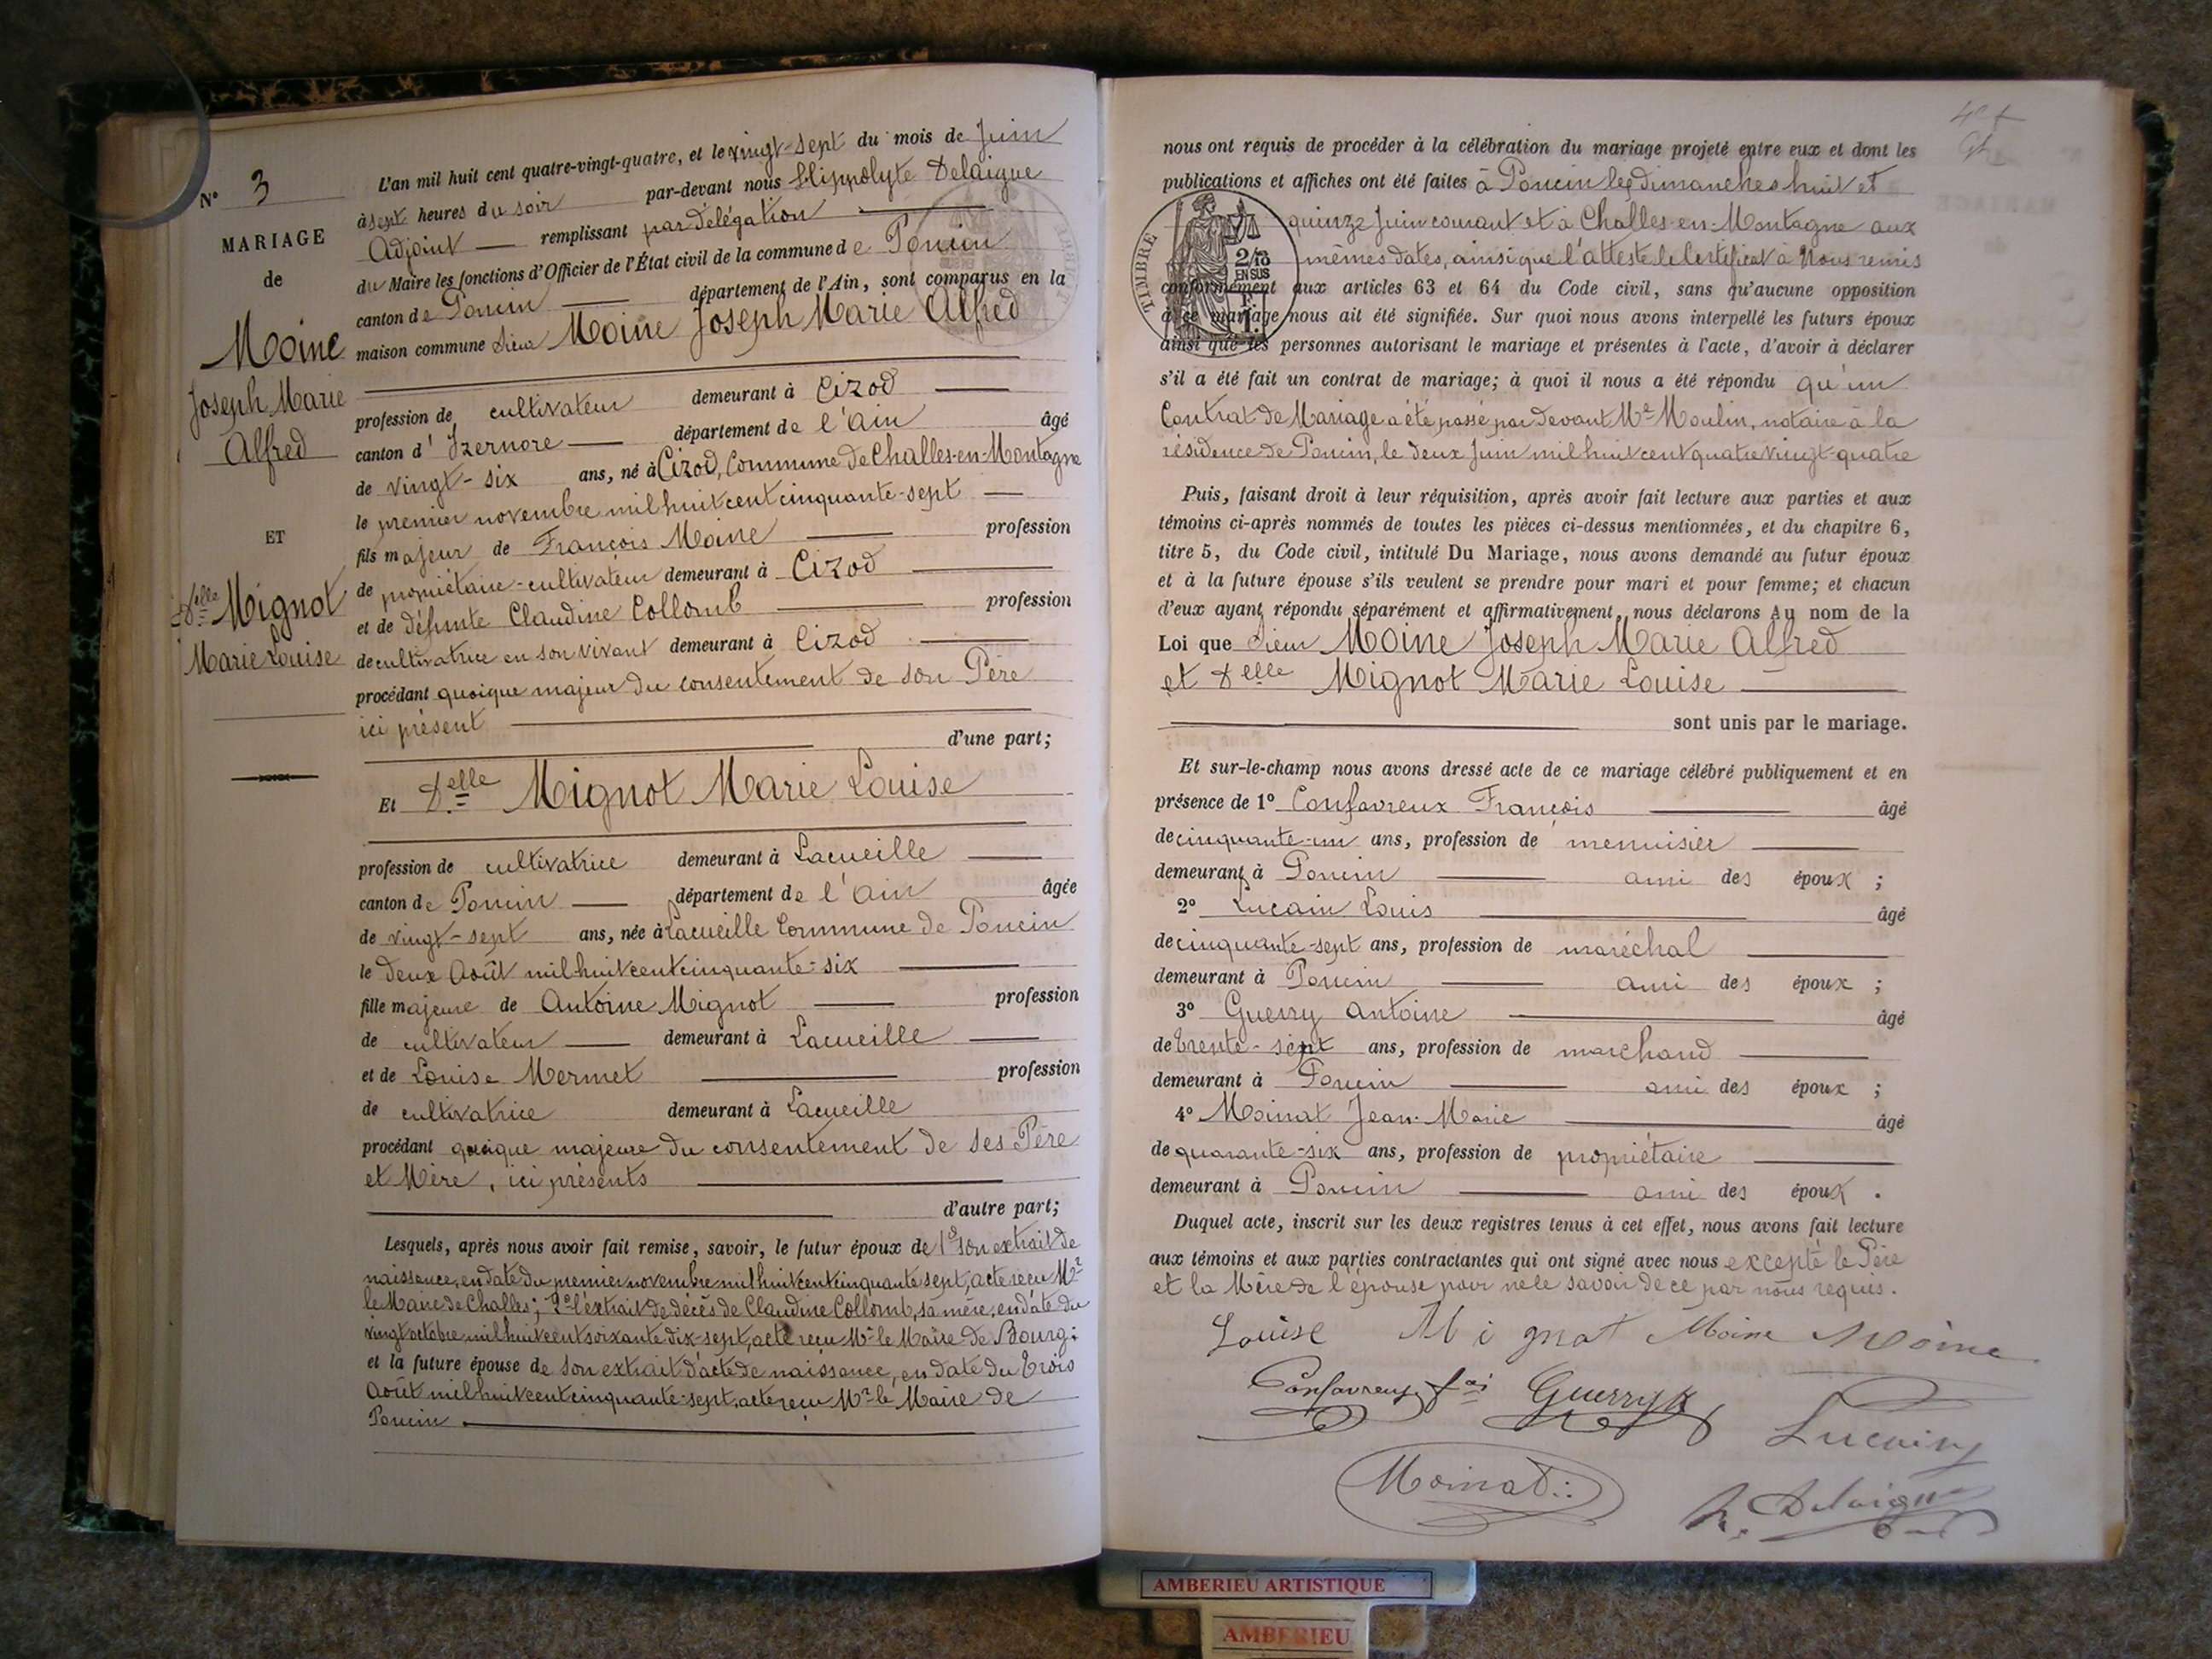 N° 3
MARIAGE
de
Moine
Joseph Marie
Alfred
ET
Delle Mignot
Marie Louise
L'an mil huit cent quatre-vingt-quatre, et le vingt-sept du mois de Juin
à sept heures du soir par-devant nous Hippolyte Delaigue
Adjoint remplissant par délégation
du Maire les fonctions d'Officier de l'État civil de la commune de Poncin
canton de Poncin département de l'Ain, sont comparus en la
maison commune Sieur Moine Joseph Marie Alfred
profession de cultivateur demeurant à Cizod
canton d'Izernore département de l'Ain âgé
de vingt-six ans, né à Cizod, Commune de Challes-en-Montagne
le premier novembre mil huit cent cinquante-sept
fils majeur de François Moine profession
de propriétaire-cultivateur demeurant à Cizod
et de défunte Claudine Collomb profession
de cultivatrice en son vivant demeurant à Cizod
procédant quoique majeur du consentement de son Père
ici présent
d'une part;
Et Delle Mignot Marie Louise
profession de cultivatrice demeurant à Lacueille
canton de Poncin département de l'Ain âgée
de vingt-sept ans, née à Lacueille Commune de Poncin
le deux Août mil huit cent cinquante-six
fille majeure de Antoine Mignot profession
de cultivateur demeurant à Lacueille
et de Louise Mermet profession
de cultivatrice demeurant à Lacueille
procédant quoique majeure du consentement de ses Père
et Mère, ici présents
d'autre part;
Lesquels, après nous avoir fait remise, savoir, le futur époux de 1° son extrait de
naissance, en date du premier novembre mil huit cent cinquante sept, acte reçu Mr
le Maire de Challes; 2° l'extrait de décès de Claudine Collomb, sa mère, en date du
vingt octobre mil huit cent soixante dix-sept, acte reçu Mr le Maire de Bourg;
et la future épouse de son extrait d'acte de naissance, en date du trois
Août mil huit cent cinquante-sept, acte reçu Mr le Maire de
Poncin
nous ont requis de procéder à la célébration du mariage projeté entre eux et dont les
publications et affiches ont été faites à Poncin les dimanches huit et
quinze Juin courant et à Challes-en-Montagne aux
mêmes dates, ainsi que l'atteste le Certificat à Nous remis
TIMBRE
2/10
EN SUS
conformément aux articles 63 et 64 du Code civil, sans qu'aucune opposition
à ce mariage nous ait été signifiée. Sur quoi nous avons interpellé les futurs époux
ainsi que les personnes autorisant le mariage et présentes à l'acte, d'avoir à déclarer
s'il a été fait un contrat de mariage; à quoi il nous a été répondu qu'un
Contrat de Mariage a été passé par devant Me Moulin, notaire à la
résidence de Poncin, le deux Juin mil huit cent quatre vingt-quatre
Puis, faisant droit à leur réquisition, après avoir fait lecture aux parties et aux
témoins ci-après nommés de toutes les pièces ci-dessus mentionnées, et du chapitre 6,
titre 5, du Code civil, intitulé Du Mariage, nous avons demandé au futur époux
et à la future épouse s'ils veulent se prendre pour mari et pour femme; et chacun
d'eux ayant répondu séparément et affirmativement, nous déclarons Au nom de la
Loi que Sieur Moine Joseph Marie Alfred
et Delle Mignot Marie Louise
sont unis par le mariage.
Et sur-le-champ nous avons dressé acte de ce mariage célébré publiquement et en
présence de 1° Confavreux François âgé
de cinquante-un ans, profession de menuisier
demeurant à Poncin ami des époux ;
2° Lucain Louis âgé
de cinquante-sept ans, profession de maréchal
demeurant à Poncin ami des époux ;
3° Guerry Antoine âgé
de trente-sept ans, profession de marchand
demeurant à Poncin ami des époux ;
4° Moinat Jean-Marie âgé
de quarante-six ans, profession de propriétaire
demeurant à Poncin ami des époux .
Duquel acte, inscrit sur les deux registres tenus à cet effet, nous avons fait lecture
aux témoins et aux parties contractantes qui ont signé avec nous excepté le Père
et la Mère de l'épouse pour ne le savoir de ce par nous requis.
Louise Mignot Moine Moine
Confavreux fois Guerry
Lucain
Moinat
h. Delaigue
AMBERIEU ARTISTIQUE
AMBERIEU